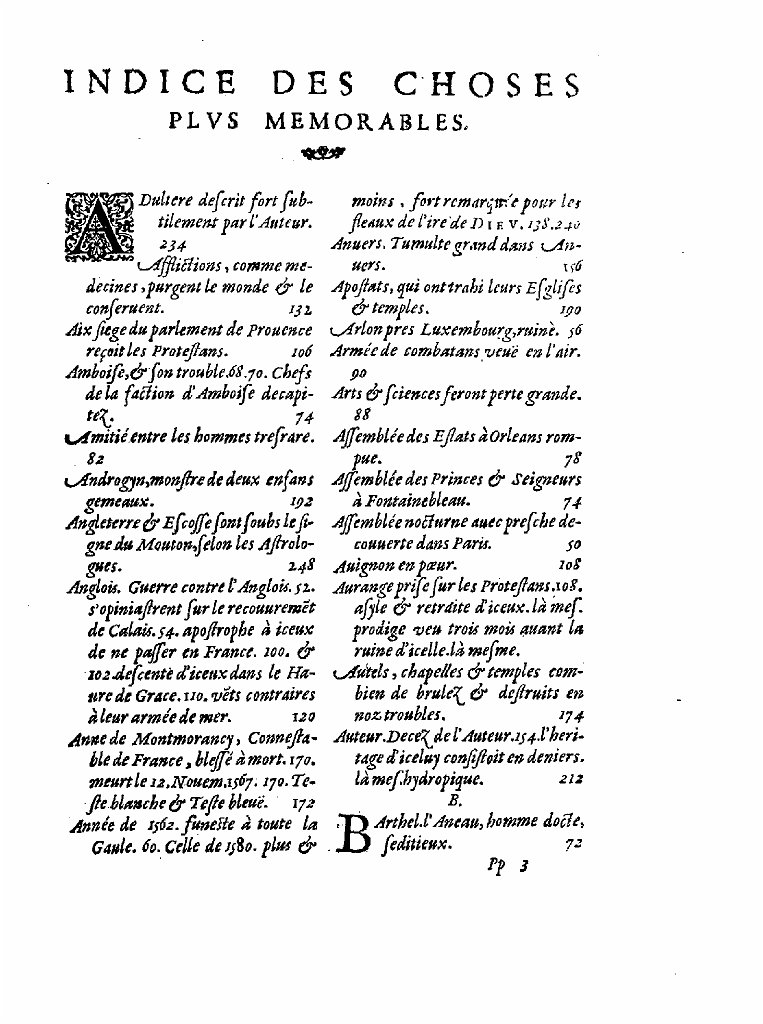 INDICE DES CHOSES
PLVS MEMORABLES.
ADultere deſcrit fort ſub-
tilement par l'Auteur.
234
Afflictions, comme me-
decines, purgent le monde & le
conſeruent. 132
Aix ſiege du parlement de Prouence
reçoit les Proteſtans. 106
Amboiſe, & ſon trouble. 68. 70. Chefs
de la faction d'Amboiſe decapi-
tez. 74
Amitié entre les hommes treſrare.
82
Androgyn, monſtre de deux enfans
gemeaux. 192
Angleterre & Eſcoſſe ſont ſoubs le ſi-
gne du Mouton, ſelon les Aſtrolo-
gues. 248
Anglois. Guerre contre l'Anglois. 52.
s'opiniaſtrent ſur le recouuremēt
de Calais. 54. apoſtrophe à iceux
de ne paſſer en France. 100. &
102. deſcente d'iceux dans le Ha-
ure de Grace. 110. vēts contraires
à leur armée de mer. 120
Anne de Montmorancy, Conneſta-
ble de France, bleſſé à mort. 170.
meurt le 12. Nouem. 1567. 170. Te-
ſte blanche & Teſte bleuë. 172
Année de 1562. funeſte à toute la
Gaule. 60. Celle de 1580. plus &
moins, fort remarquée pour les
fleaux de l'ire de DIEV. 138. 240
Anuers. Tumulte grand dans An-
uers. 156
Apoſtats, qui ont trahi leurs Eſgliſes
& temples. 190
Arlon pres Luxembourg, ruinè. 56
Armée de combatans veuë en l'air.
90
Arts & ſciences feront perte grande.
88
Aſſemblée des Eſtats à Orleans rom-
pue. 78
Aſſemblée des Princes & Seigneurs
à Fontainebleau. 74
Aſſemblée nocturne auec preſche de-
couuerte dans Paris. 50
Auignon en pœur. 108
Aurange priſe ſur les Proteſtans. 108.
aſyle & retraite d'iceux. là meſ.
prodige veu trois mois auant la
ruine d'icelle. là meſme.
Autels, chapelles & temples com-
bien de brulez & deſtruits en
noz troubles. 174
Auteur. Decez de l'Auteur. 154. l'heri-
tage d'iceluy conſiſtoit en deniers.
là meſ. hydropique. 212
B.
BArthel. l'Aneau, homme docte,
ſeditieux. 72
Pp 3